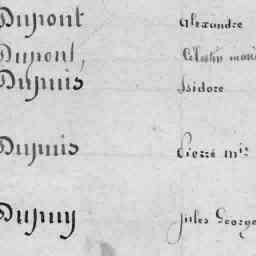 Dupont Alexandre
Dupont, Célestin marie
Dupuis Isidore
Dupuis Pierre m.is
Dupuy Jules George